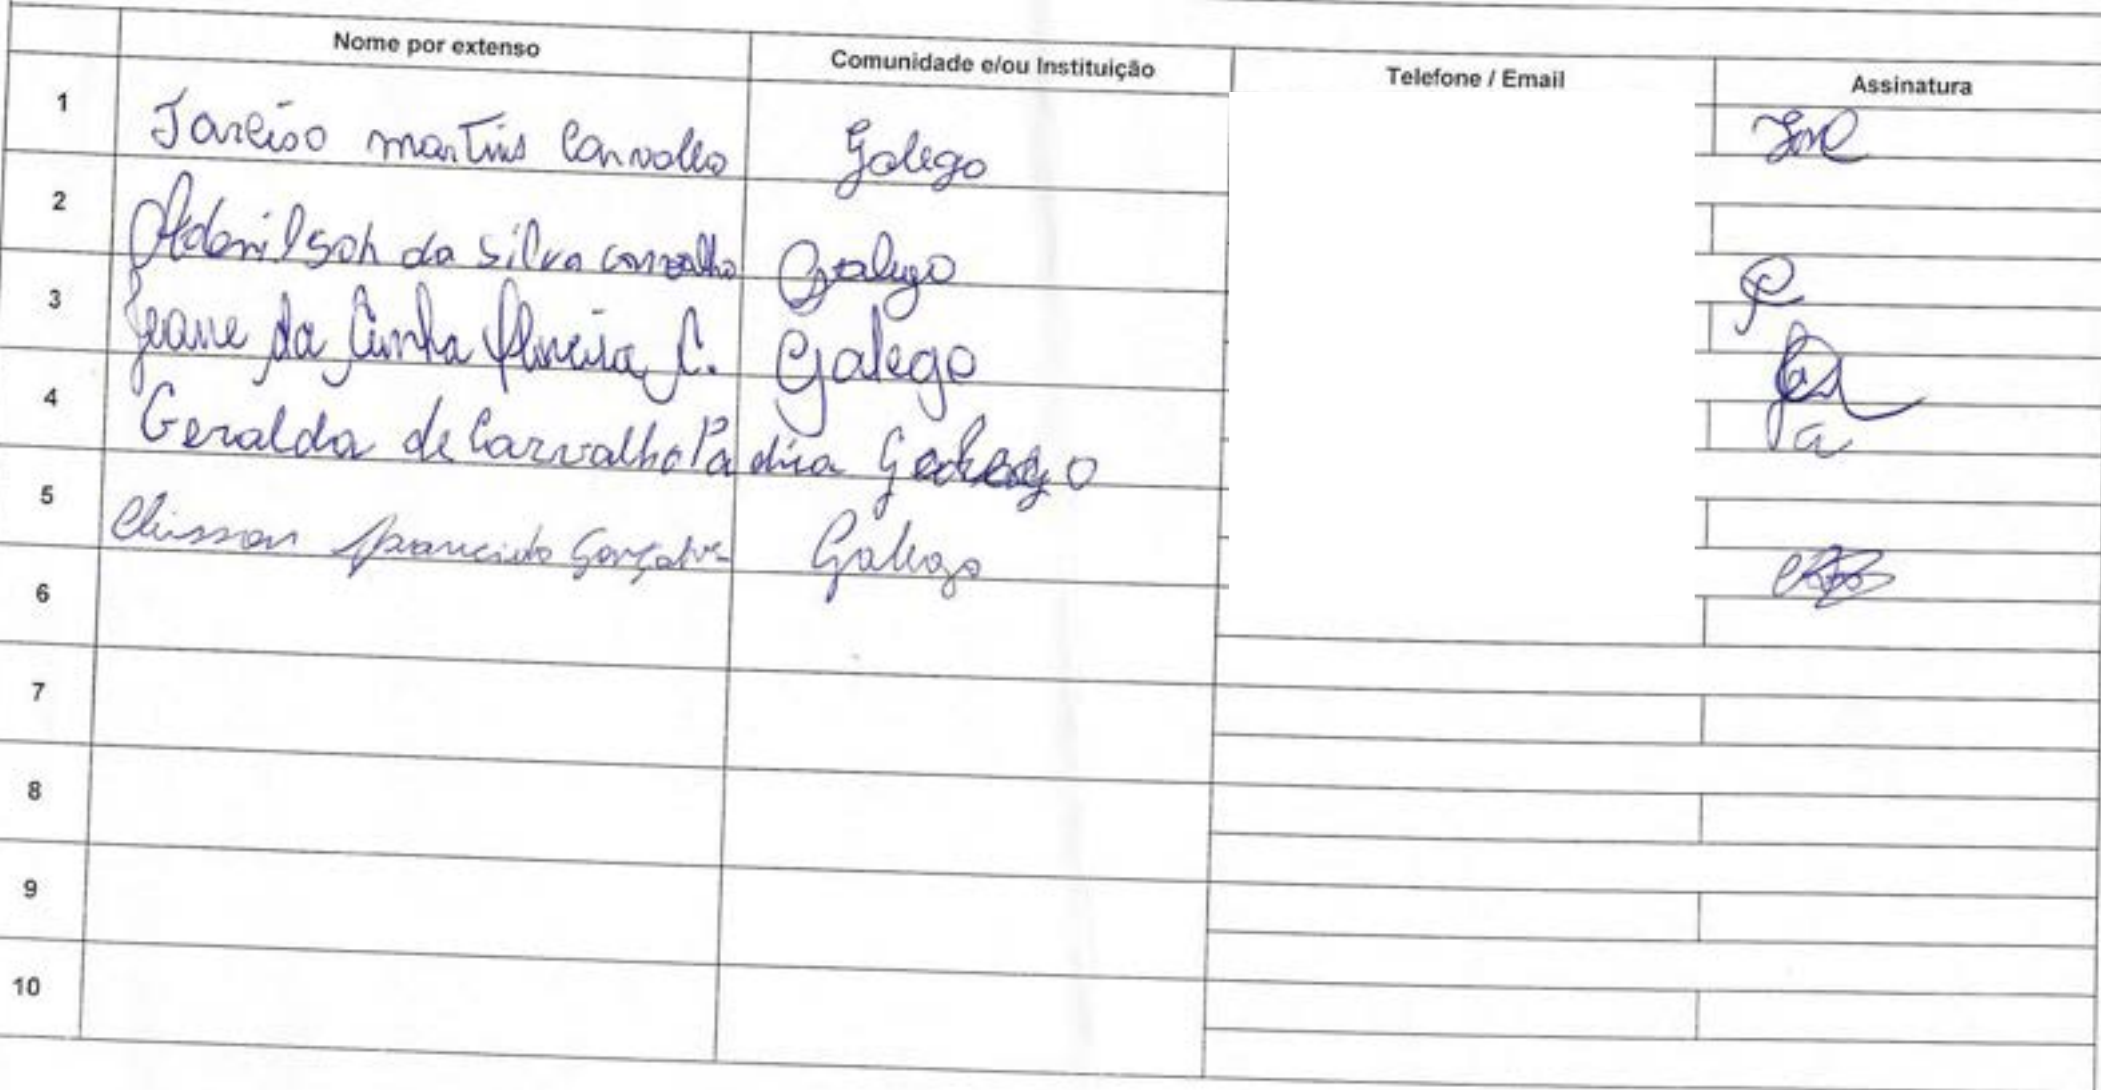 Nome por extenso Comunidade e/ou Instituição Telefone / Email Assinatura
1 Tarciso martins Carvalho Galego
2 Adenilson da silva carvalho Galego
3 Jeane da Cunha C. Galego
4 Geralda de Carvalho Padua Galego
5 Aparecido Gonçalves Galego
6
7
8
9
10